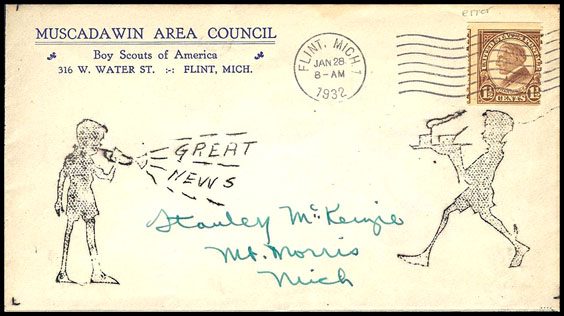 error
MUSCADAWIN AREA COUNCIL
Boy Scouts of America
316 W. WATER ST. :-: FLINT, MICH.
FLINT, MICH. 1
JAN 28
8-AM
1932
UNITED STATES POSTAGE
1½ CENTS 1½
GREAT
NEWS
Stanley McKenzie
Mt. Morris
Mich